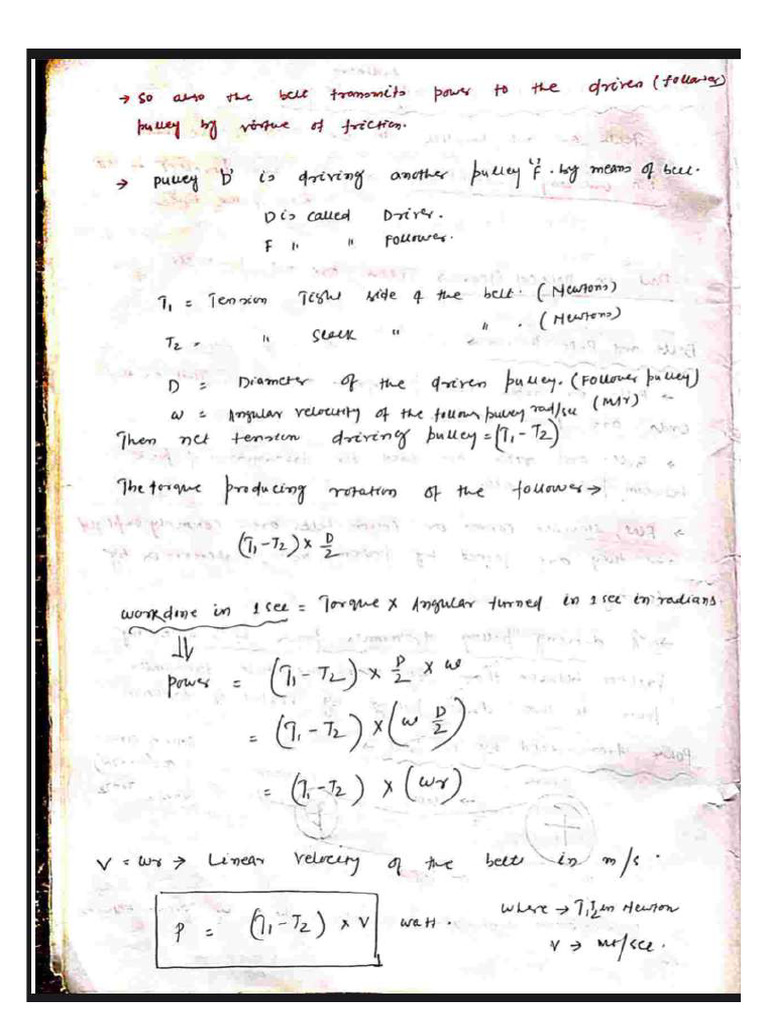 → So also the belt transmits power to the driven (follower)
pulley by virtue of friction.
→ Pulley 'D' is driving another pulley 'F'. by means of belt.
D is called Driver.
F " " Follower.
T₁ = Tension Tight side of the belt. (Newtons)
T₂ = " Slack " " . (Newtons)
D = Diameter of the driven pulley. (Follower pulley)
ω = Angular velocity of the follower pulley rad/sec
Then net tension driving pulley = (T₁ - T₂)
The torque producing rotation of the follower →
(T₁ - T₂) × D/2
work done in 1 sec = Torque × Angular turned in 1 sec in radians.
⇓
Power = (T₁ - T₂) × D/2 × ω
= (T₁ - T₂) × (ω D/2)
= (T₁ - T₂) × (ωr)
V = ωr → Linear velocity of the belt in m/s.
P = (T₁ - T₂) × V watt. where → T₁T₂ in Newton
V → mt/sec.